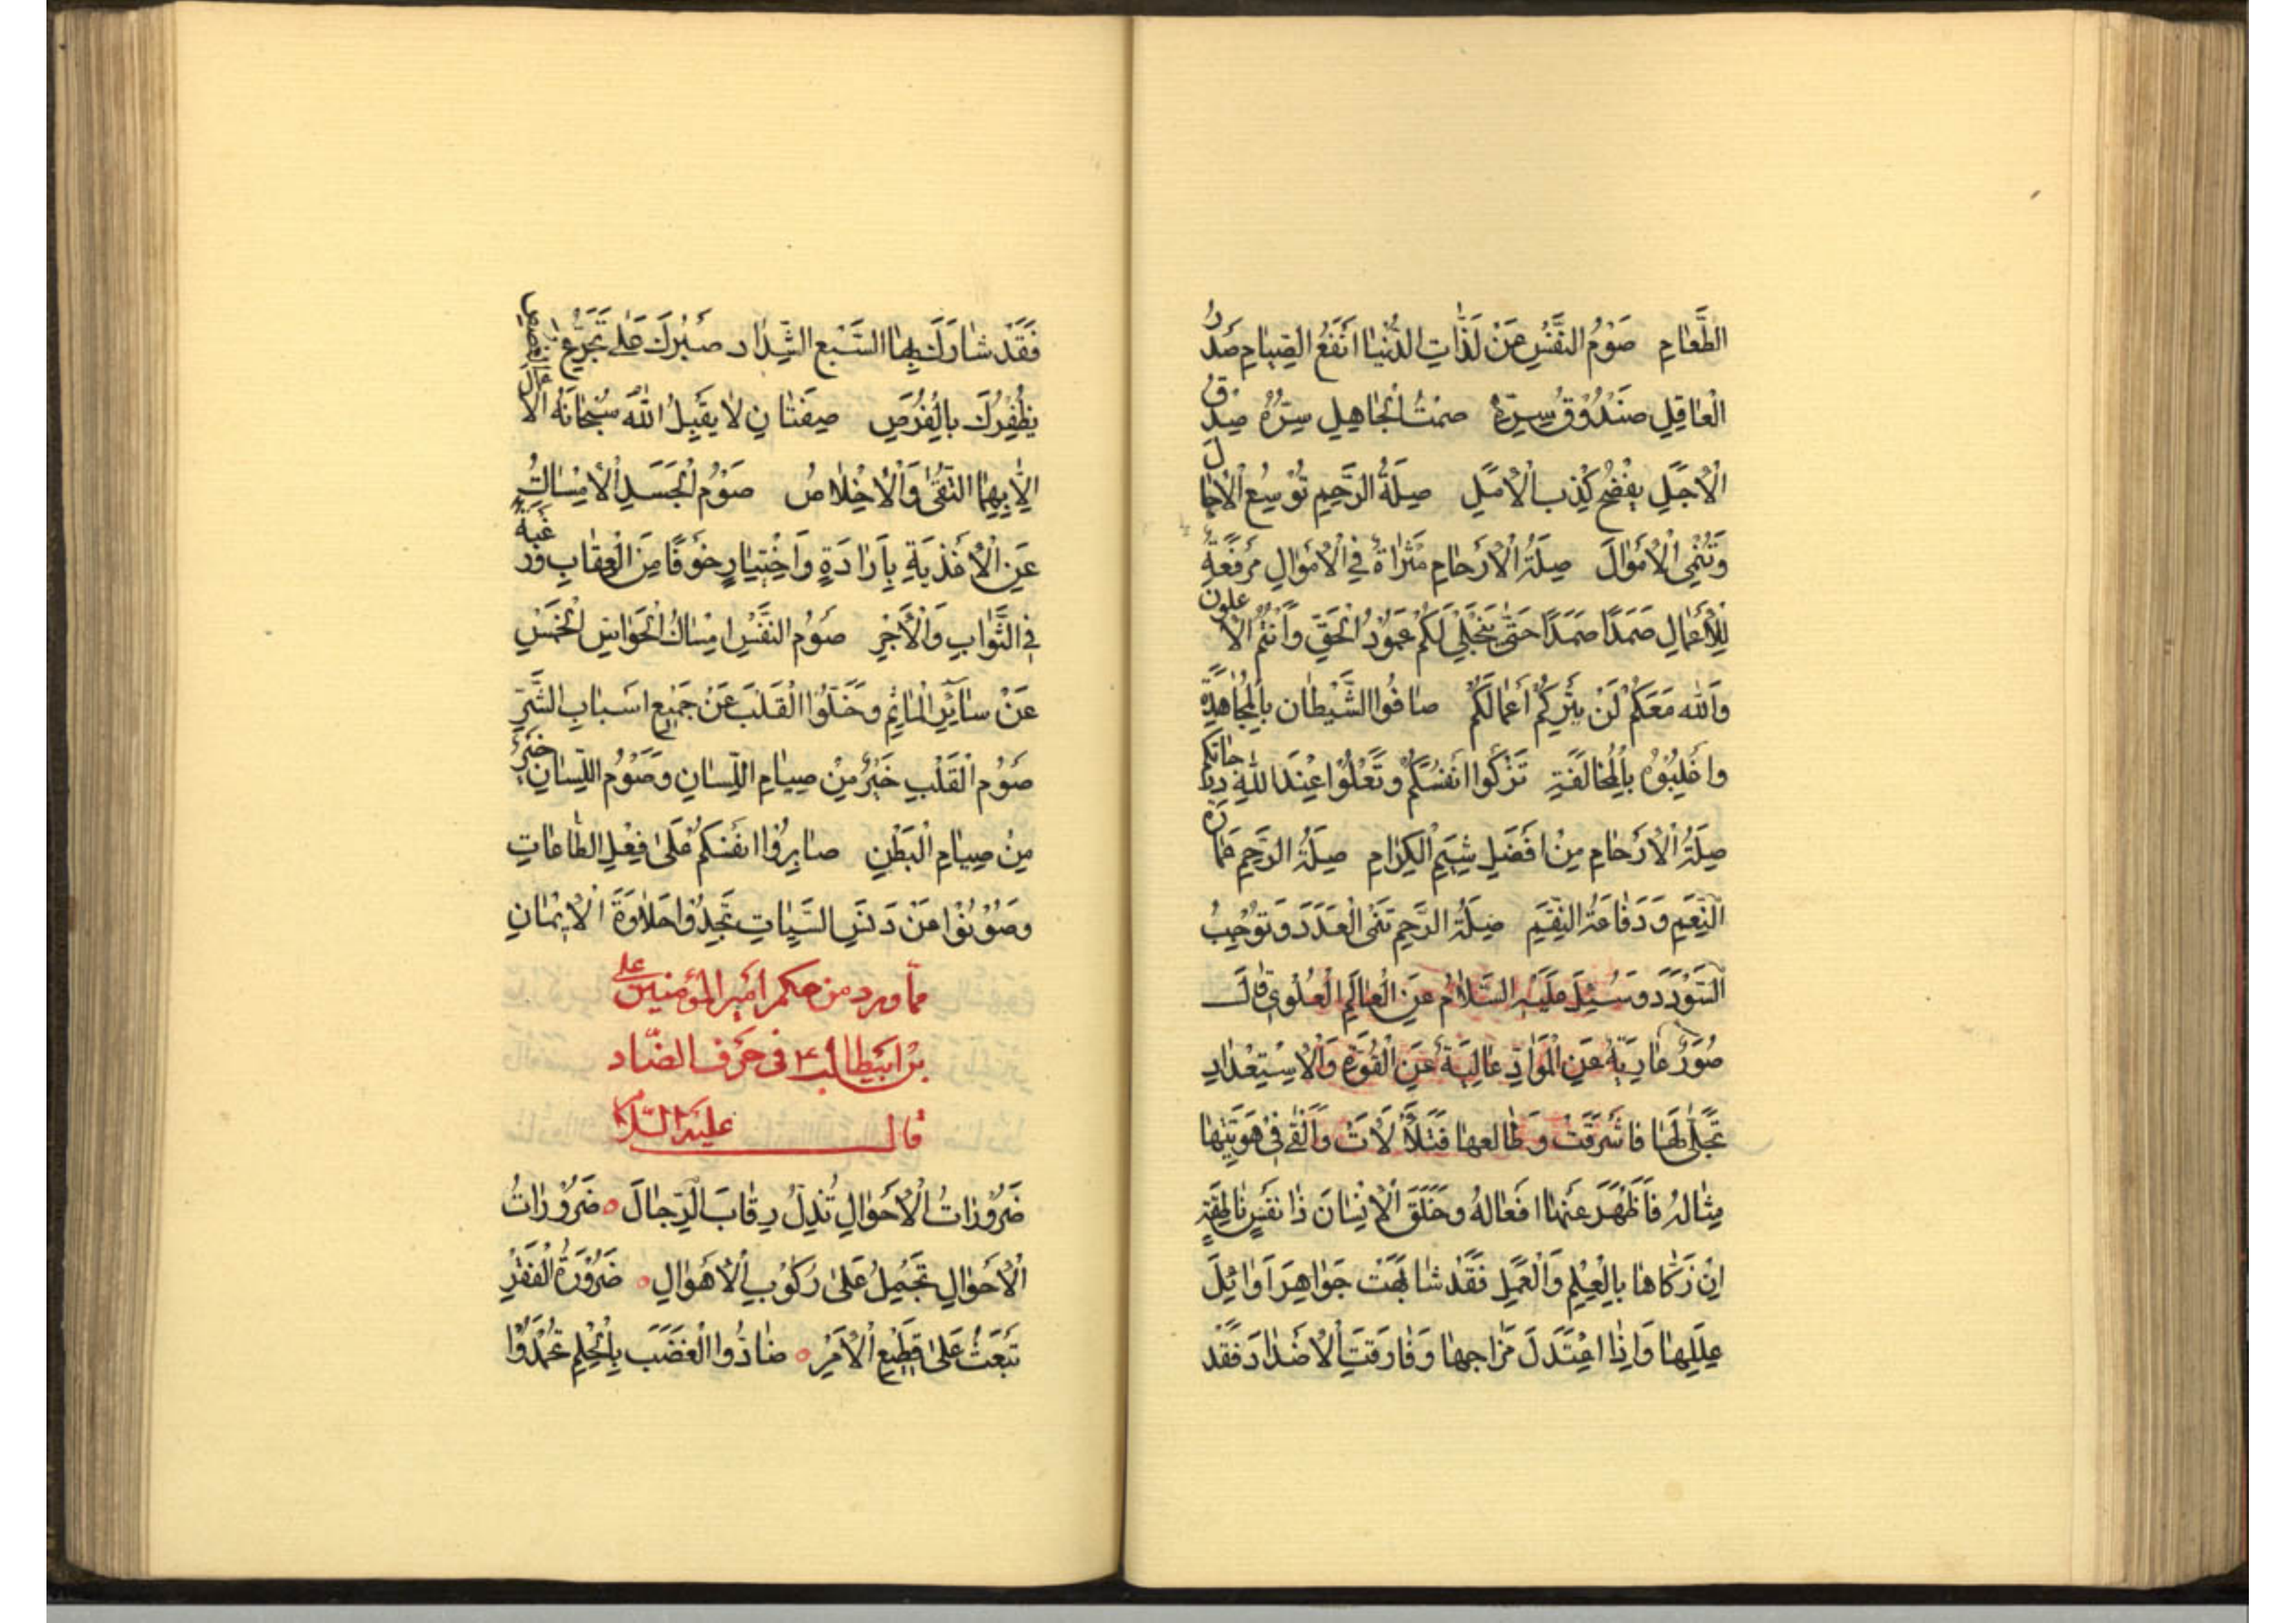 الطَّعَامِ صَوْمُ النَّفْسِ عَنْ لَذَّاتِ الدُّنْيَا اَنْفَعُ الصِّيَامِ صَدْرُ
الْعَاقِلِ صَنْدُوْقُ سِرِّهِ صَمْتُ الْجَاهِلِ سِتْرُهُ صِدْقُ
الْاَجَلِ يَفْضَحُ كِذْبَ الْاَمَلِ صِلَةُ الرَّحِمِ تُوْسِعُ الْاٰجَالَ
وَتُنْمِى الْاَمْوَالَ صِلَةُ الْاَرْحَامِ مَثْرَاةٌ فِى الْاَمْوَالِ مَرْفَعَةٌ
لِلْاَعْمَالِ صَمَدًا صَمَدًا حَتّٰى يَنْجَلِىَ لَكُمْ عَمُوْدُ الْحَقِّ وَاَنْتُمُ الْاَعْلَوْنَ
وَاللهُ مَعَكُمْ لَنْ يَتِرَكُمْ اَعْمَالَكُمْ صَافُّوا الشَّيْطَانَ بِالْمُجَاهَدَةِ
وَاغْلِبُوْهُ بِالْمُخَالَفَةِ تَزْكُوا اَنْفُسُكُمْ وَتَعْلُوْا عِنْدَ اللهِ دَرَجَاتُكُمْ
صِلَةُ الْاَرْحَامِ مِنْ اَفْضَلِ شِيَمِ الْكِرَامِ صِلَةُ الرَّحِمِ عَمَارَةُ
النِّعَمِ وَدَفَاعَةُ النِّقَمِ صِلَةُ الرَّحِمِ تَنْمِى الْعَدَدَ وَتُوْجِبُ
السُّوْدَدَ وَسُئِلَ عَلَيْهِ السَّلَامُ عَنِ الْعَالَمِ الْعُلْوِىِّ قَالَ
صُوَرٌ عَارِيَةٌ عَنِ الْمَوَادِّ عَالِيَةٌ عَنِ الْقُوَّةِ وَالْاِسْتِعْدَادِ
تَجَلّٰى لَهَا فَاَشْرَقَتْ وَطَالَعَهَا فَتَلَأْلَأَتْ وَاَلْقٰى فِىْ هَوِيَّتِهَا
مِثَالَهُ فَاَظْهَرَ عَنْهَا اَفْعَالَهُ وَخَلَقَ الْاِنْسَانَ ذَا نَفْسٍ نَاطِقَةٍ
اِنْ زَكَّاهَا بِالْعِلْمِ وَالْعَمَلِ فَقَدْ شَابَهَتْ جَوَاهِرَ اَوَائِلَ
عِلَلِهَا وَاِذَا اعْتَدَلَ مَزَاجُهَا وَفَارَقَتِ الْاَضْدَادَ فَقَدْ
فَقَدْ شَارَكَ بِهَا السَّبْعَ الشِّدَادَ صَبْرُكَ عَلٰى تَجَرُّعِ الْغُصَصِ
يُظْفِرُكَ بِالْفُرَصِ صِفَتَانِ لَا يَقْبَلُ اللهُ سُبْحَانَهُ الْاَعْمَالَ
اِلَّا بِهِمَا التُّقٰى وَالْاِخْلَاصُ صَوْمُ الْجَسَدِ الْاِمْسَاكُ
عَنِ الْاَغْذِيَةِ بِاِرَادَةٍ وَاخْتِيَارٍ خَوْفًا مِنَ الْعِقَابِ وَرَغْبَةً
فِى الثَّوَابِ وَالْاَجْرِ صَوْمُ النَّفْسِ اِمْسَاكُ الْحَوَاسِّ الْخَمْسِ
عَنْ سَائِرِ الْمَاٰثِمِ وَخُلُوُّ الْقَلْبِ عَنْ جَمِيْعِ اَسْبَابِ الشَّرِّ
صَوْمُ الْقَلْبِ خَيْرٌ مِنْ صِيَامِ اللِّسَانِ وَصَوْمُ اللِّسَانِ خَيْرٌ
مِنْ صِيَامِ الْبَطْنِ صَابِرُوْا اَنْفُسَكُمْ عَلٰى فِعْلِ الطَّاعَاتِ
وَصُوْنُوْهَا عَنْ دَنَسِ السَّيِّاٰتِ تَجِدُوْا حَلَاوَةَ الْاِيْمَانِ
مما ورد من حكم امير المؤمنين على
بن ابيطالب ع فى حرف الضّاد
قال عليه السّلام
ضَرُوْرَاتُ الْاَحْوَالِ تُذِلُّ رِقَابَ الرِّجَالِ ضَرُوْرَاتُ
الْاَحْوَالِ تَحْمِلُ عَلٰى رُكُوْبِ الْاَهْوَالِ ضَرُوْرَةُ الْفَقْرِ
تَبْعَثُ عَلٰى فَظِيْعِ الْاَمْرِ ضَادُّوا الْغَضَبَ بِالْحِلْمِ تُحْمَدُوْا